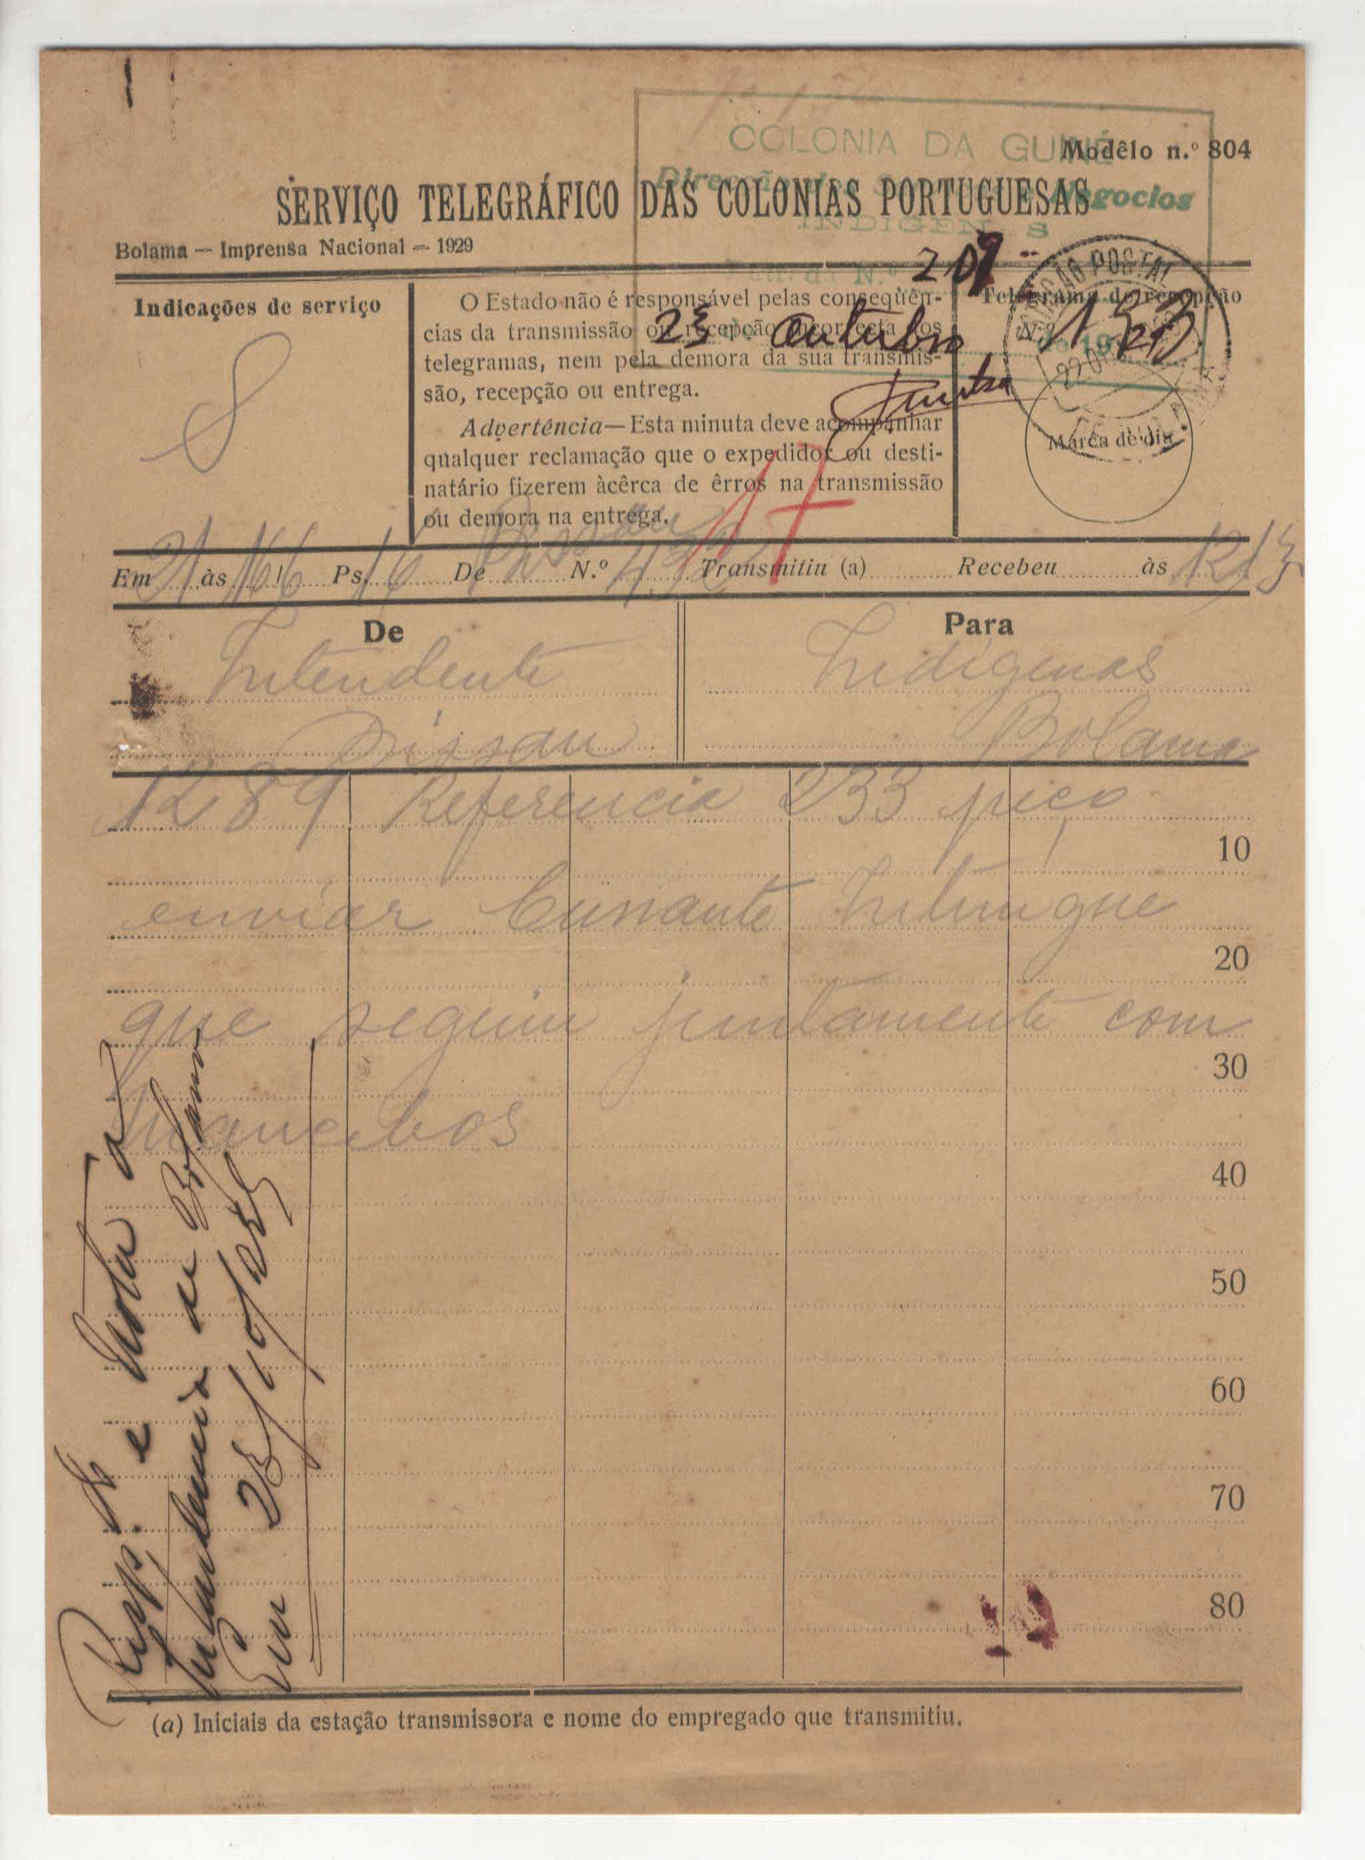 COLONIA DA GUINÉ
Modêlo n.º 804
Negocios
SERVIÇO TELEGRÁFICO DAS COLONIAS PORTUGUESAS
Bolama — Imprensa Nacional — 1929
209
Indicações de serviço
8
O Estado não é responsável pelas conseqüên-
cias da transmissão ou recepção incorrecta dos
telegramas, nem pela demora da sua transmis-
são, recepção ou entrega.
Advertência—Esta minuta deve acompanhar
qualquer reclamação que o expedidor ou desti-
natário fizerem àcêrca de êrros na transmissão
ou demora na entrega.
23 Outubro
17
Telegrama de recepção
N.º 133
Marca de dia
Em 21 às 166 Ps. 16 De Bissau N.º 432 Transmitiu (a) Recebeu às 1213
De
Intendente
Bissau
Para
Indigenas
Bolama
1289 Referencia 233 peço
10
enviar
20
que seguiu juntamente com
30
mancebos
40
50
60
70
80
e Nota á
Intendencia de Bolama
Em 23/10/35
(a) Iniciais da estação transmissora e nome do empregado que transmitiu.